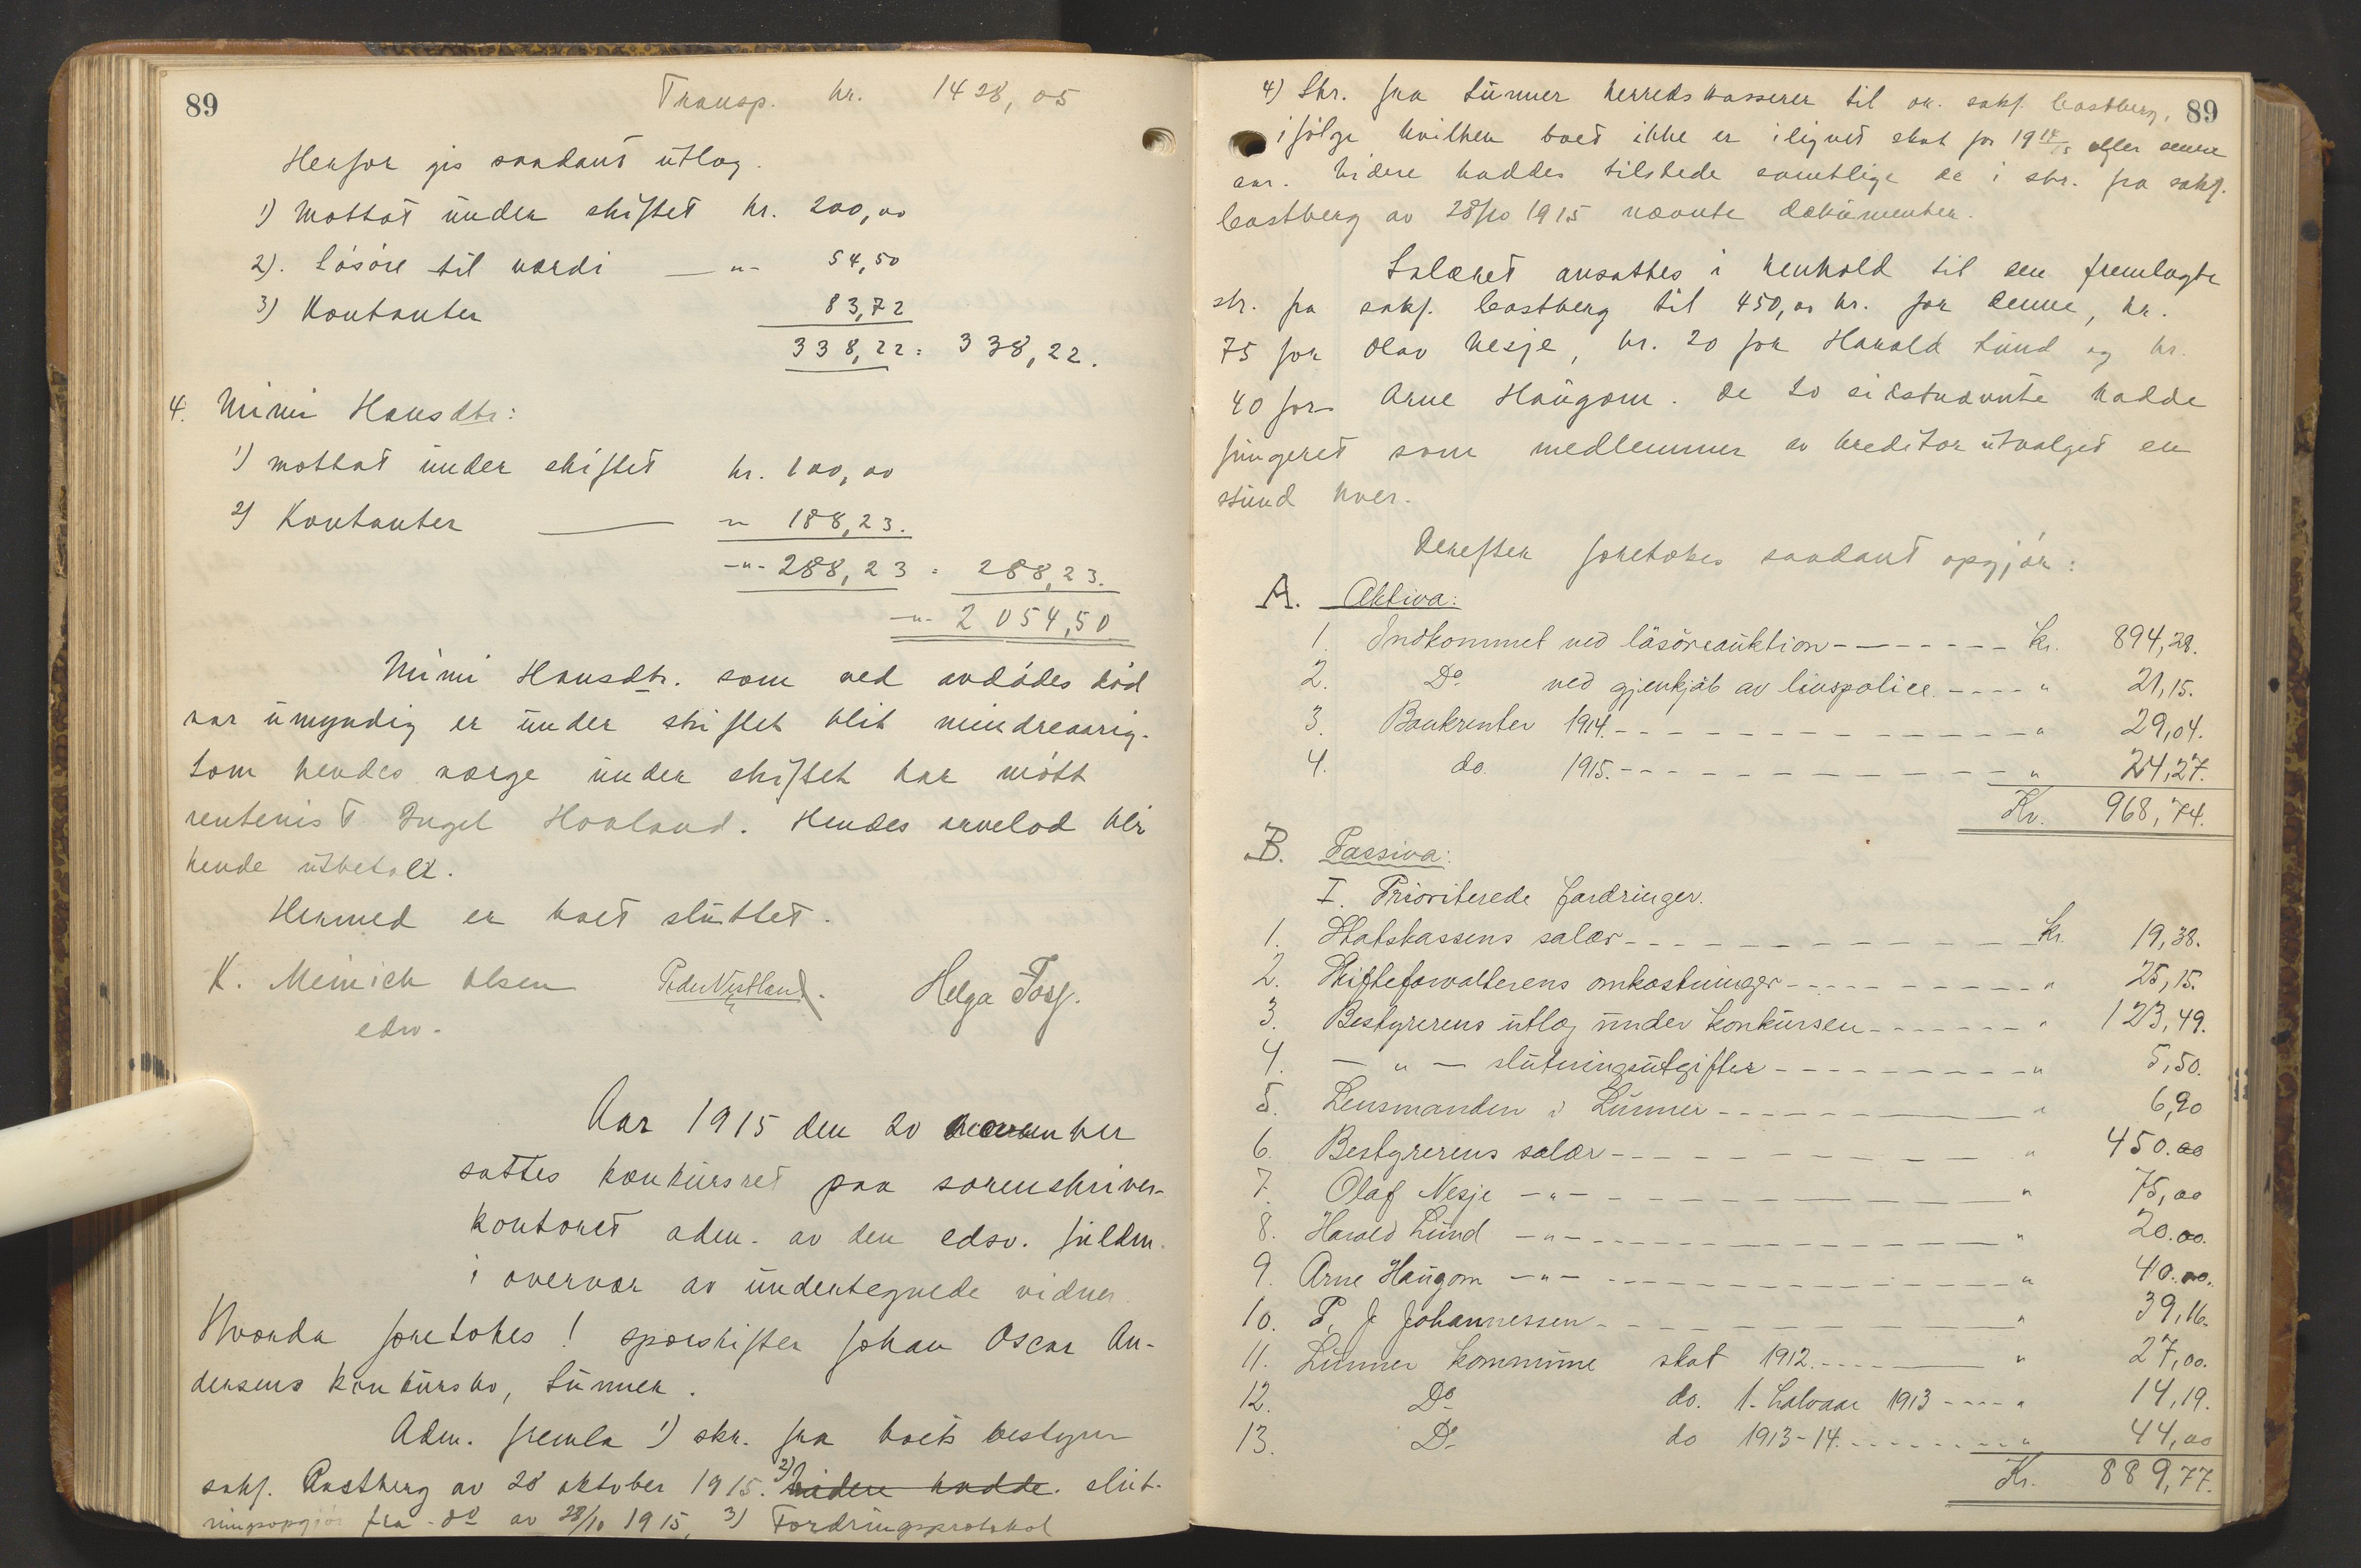 89
Transp. kr. 1428,05
Herfor gis saadant utlæg.
1) Mottat under skiftet kr. 200,00
2). Løsøre til værdi — " - 54,50
3) Kontanter 83,72
338,22 = 338,22.
4. Mimi Hansdtr:
1) mottat under skiftet kr. 100,00
2) Kontanter — " 188,23.
-"- 288,23 = 288,23.
-"- 2054,50
Mimi Hansdtr. som ved avdødes død
var umyndig er under skiftet blit mindreaarig.
Som hendes værge under skiftet har møtt
rentenist Engel Hovland. Hendes arvelod blir
hende utbetalt.
Hermed er boet sluttet.
K. Meinich Olsen Peder Vestland. Helga Fosf.
edsv.
Aar 1915 den 20 november
sattes konkursret paa sorenskriver-
kontoret adm. av den edsv. fuldm.
i overvær av undertegnede vidner.
Hvorda foretokes! spørskiften Johan Oscar An-
dersens konkursbo, Lunner.
Adm. fremla 1) skr. fra boets bestyrer
sakf. Castberg av 28 oktober 1915. 2) videre hadde. slut-
ningsopgjør fra do av 28/10 1915, 3) Fordringsprotokol
89
4) Skr. fra Lunner herredskasserer til or. sakf. Castberg,
ifølge hvilken boet ikke er ilignet skat for 1914/15 eller senere
aar. Videre haddes tilstede samtlige de i skr. fra sakf.
Castberg av 28/10 1915 nævnte dokumenter.
Salæret ansattes i henhold til den fremlagte
skr. fra sakf. Castberg til 450,00 kr. for denne, kr.
75 for Olav Nesje, kr. 20 for Harald Lund og kr.
40 for Arne Haugom. De to sidstnævnte hadde
fungeret som medlemmer av kreditorutvalget en
stund hver.
Derefter foretokes saadant opgjør:
A. Aktiva:
1. Indkommet ved løsøreauktion - - - - - - - Kr. 894,28.
2. Do ved gjenkjøb av livspolice - - - - " 21,15.
3. Bankrenter 1914. - - - - - - - - - - - - " 29,04.
4. do. 1915. - - - - - - - - - - - - " 24,27.
Kr. 968,74.
B. Passiva:
I. Prioriterede fordringer.
1. Statskassens salær - - - - - - - - - - - - Kr. 19,38.
2. Skifteforvalterens omkostninger - - - - - - - - - " 25,15.
3. Bestyrerens utlæg under konkursen - - - - - - - " 123,49.
4. — " — slutningsutgifter - - - - - - - - - " 5,50.
5. Lensmanden i Lunner - - - - - - - - - " 6,90
6. Bestyrerens salær - - - - - - - - - - - - " 450.00
7. Olaf Nesje - " - - - - - - - - - - - - " 75,00
8. Harald Lund - " - - - - - - - - - - - - " 20.00.
9. Arne Haugom - " - - - - - - - - - - - - " 40.00.
10. P. J. Johannessen - - - - - - - - - - - - " 39,16.
11. Lunner kommune skat 1912. - - - - - - - " 27,00.
12. Do do. 1. halvaar 1913 - - - - " 14,19.
13. Do do 1913-14. - - - - - - - - " 44,00
Kr. 889,77.